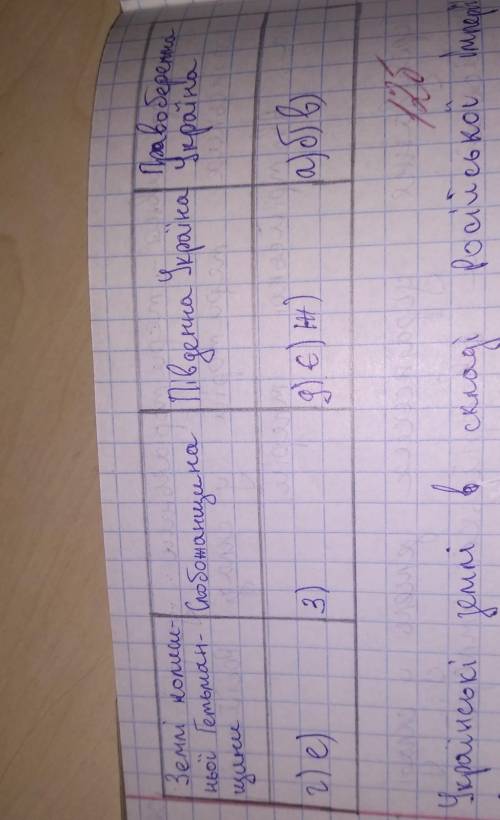 Землі колиш-
ньої Гетьман-
щини
Слобожанщина
Південна Україна
Правобережна
Україна
г) е)
з)
д) є) ж)
а) б) в)
12б
Українські землі в складі Російської імпері